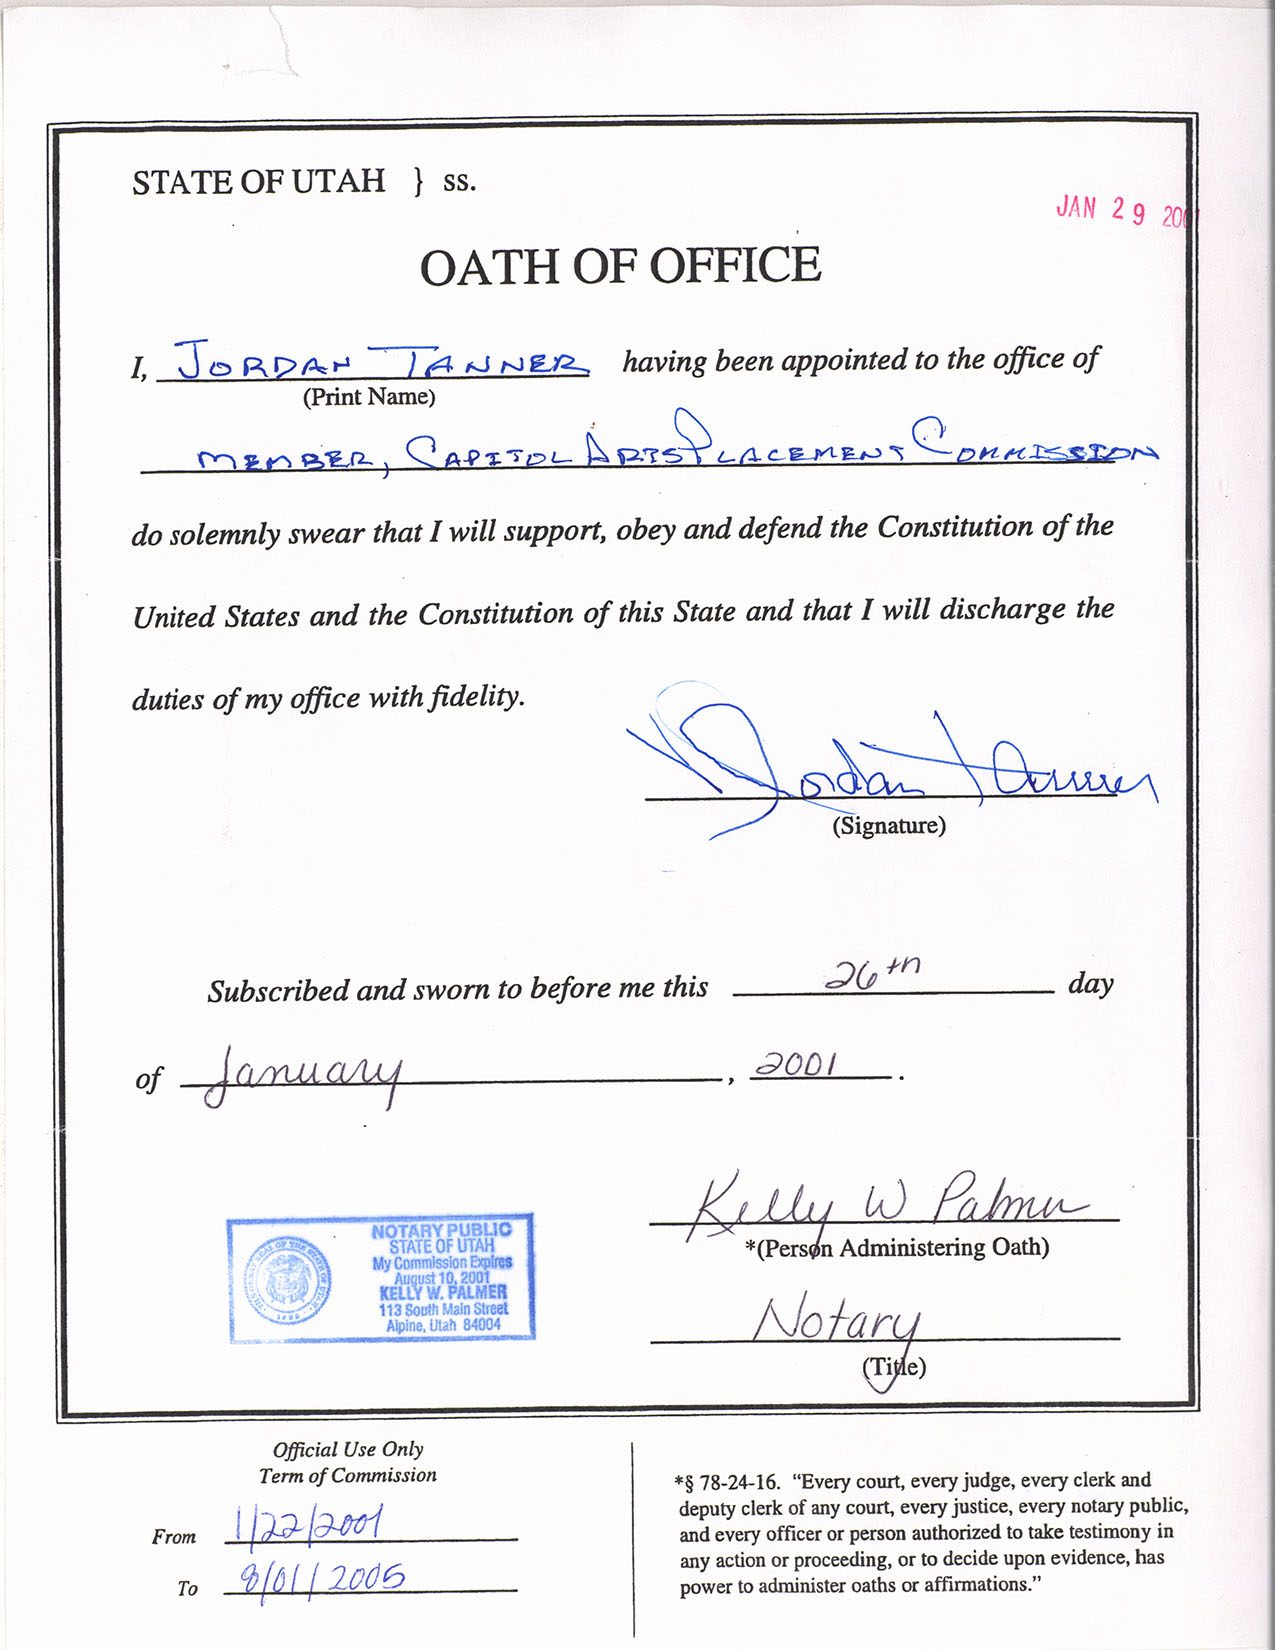 STATE OF UTAH } ss.
JAN 29 2001
OATH OF OFFICE
I, JORDAN TANNER having been appointed to the office of
(Print Name)
MEMBER, CAPITOL ARTS PLACEMENT COMMISSION
do solemnly swear that I will support, obey and defend the Constitution of the
United States and the Constitution of this State and that I will discharge the
duties of my office with fidelity.
Jordan Tanner
(Signature)
Subscribed and sworn to before me this 26th day
of January, 2001.
Kelly W Palmer
*(Person Administering Oath)
Notary
(Title)
NOTARY PUBLIC
STATE OF UTAH
My Commission Expires
August 10, 2001
KELLY W. PALMER
113 South Main Street
Alpine, Utah 84004
Official Use Only
Term of Commission
From 1/22/2001
To 8/01/2005
*§ 78-24-16. “Every court, every judge, every clerk and
deputy clerk of any court, every justice, every notary public,
and every officer or person authorized to take testimony in
any action or proceeding, or to decide upon evidence, has
power to administer oaths or affirmations.”